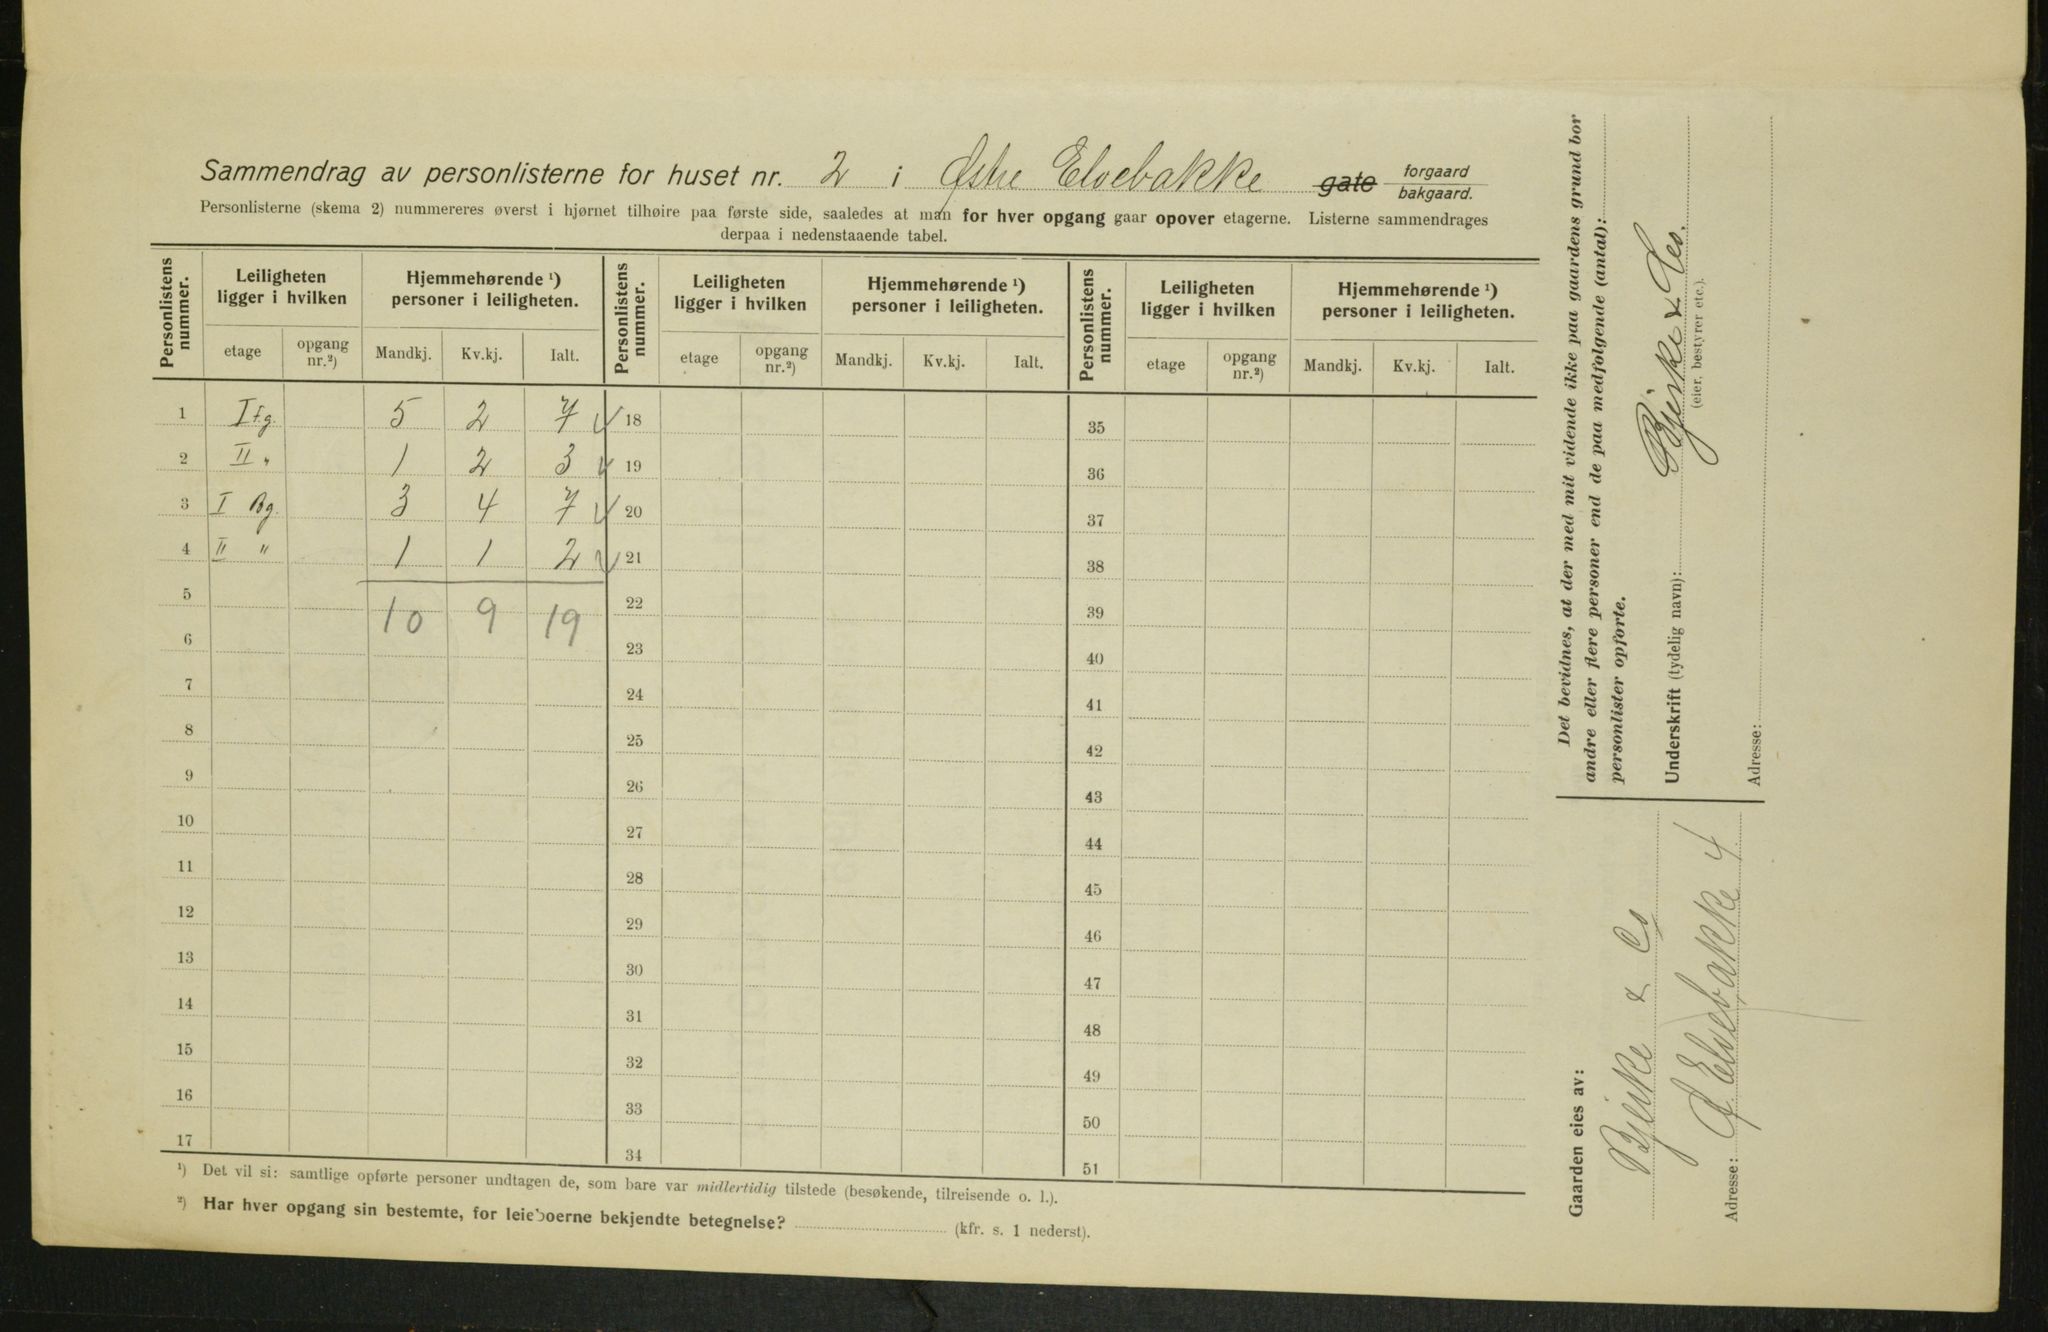 Sammendrag av personlisterne for huset nr. 2 i Østre Elvebakke gate forgaard bakgaard.
Personlisterne (skema 2) nummereres øverst i hjørnet tilhøire paa første side, saaledes at man for hver opgang gaar opover etagerne. Listerne sammendrages
derpaa i nedenstaaende tabel.
Personlistens nummer. Leiligheten ligger i hvilken Hjemmehørende ¹) personer i leiligheten. Personlistens nummer. Leiligheten ligger i hvilken Hjemmehørende ¹) personer i leiligheten. Personlistens nummer. Leiligheten ligger i hvilken Hjemmehørende ¹) personer i leiligheten.
etage opgang nr.²) Mandkj. Kv.kj. Ialt. etage opgang nr.²) Mandkj. Kv.kj. Ialt. etage opgang nr.²) Mandkj. Kv.kj. Ialt.
1 I F.g. 5 2 7 18 35
2 II " 1 2 3 19 36
3 I Bg. 3 4 7 20 37
4 II " 1 1 2 21 38
5 22 39
10 9 19
6 23 40
7 24 41
8 25 42
9 26 43
10 27 44
11 28 45
12 29 46
13 30 47
14 31 48
15 32 49
16 33 50
17 34 51
¹) Det vil si: samtlige opførte personer undtagen de, som bare var midlertidig tilstede (besøkende, tilreisende o. l.).
²) Har hver opgang sin bestemte, for leieboerne bekjendte betegnelse? (kfr. s. 1 nederst).
Det bevidnes, at der med mit vidende ikke paa gaardens grund bor
andre eller flere personer end de paa medfølgende (antal):
personlister opførte.
Underskrift (tydelig navn): Bjerke & Co.
(eier, bestyrer etc.).
Adresse:
Gaarden eies av:
Bjerke & Co
Adresse: Ø. Elvebakke 4